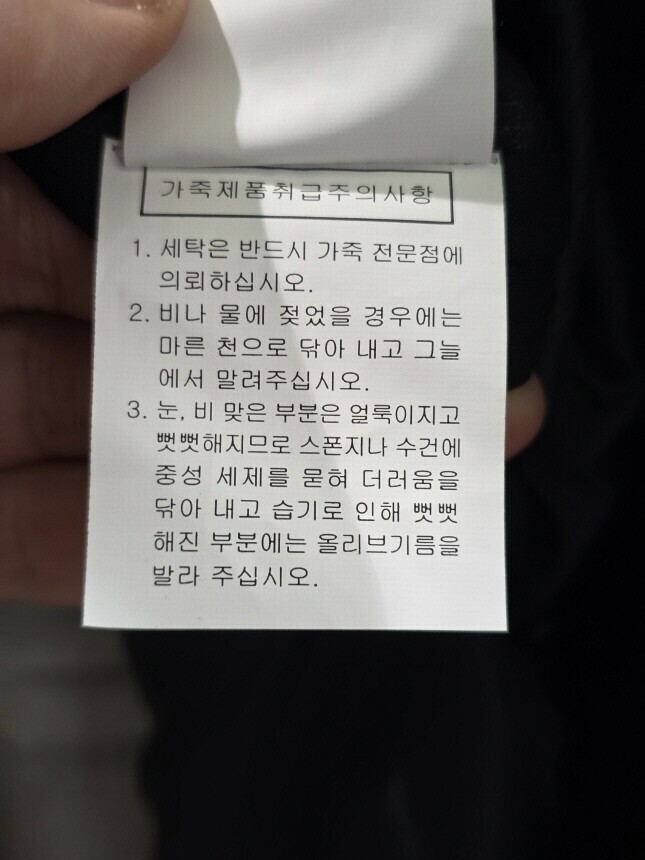 가죽제품취급주의사항
1. 세탁은 반드시 가죽 전문점에
의뢰하십시오.
2. 비나 물에 젖었을 경우에는
마른 천으로 닦아 내고 그늘
에서 말려주십시오.
3. 눈, 비 맞은 부분은 얼룩이지고
뻣뻣해지므로 스폰지나 수건에
중성 세제를 묻혀 더러움을
닦아 내고 습기로 인해 뻣뻣
해진 부분에는 올리브기름을
발라 주십시오.